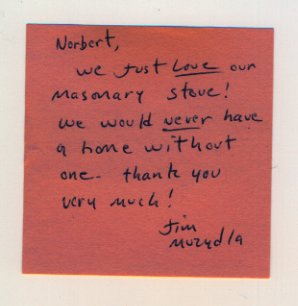 Norbert,
we just love our
masonary stove!
we would never have
a home without
one. thank you
very much!
Jim